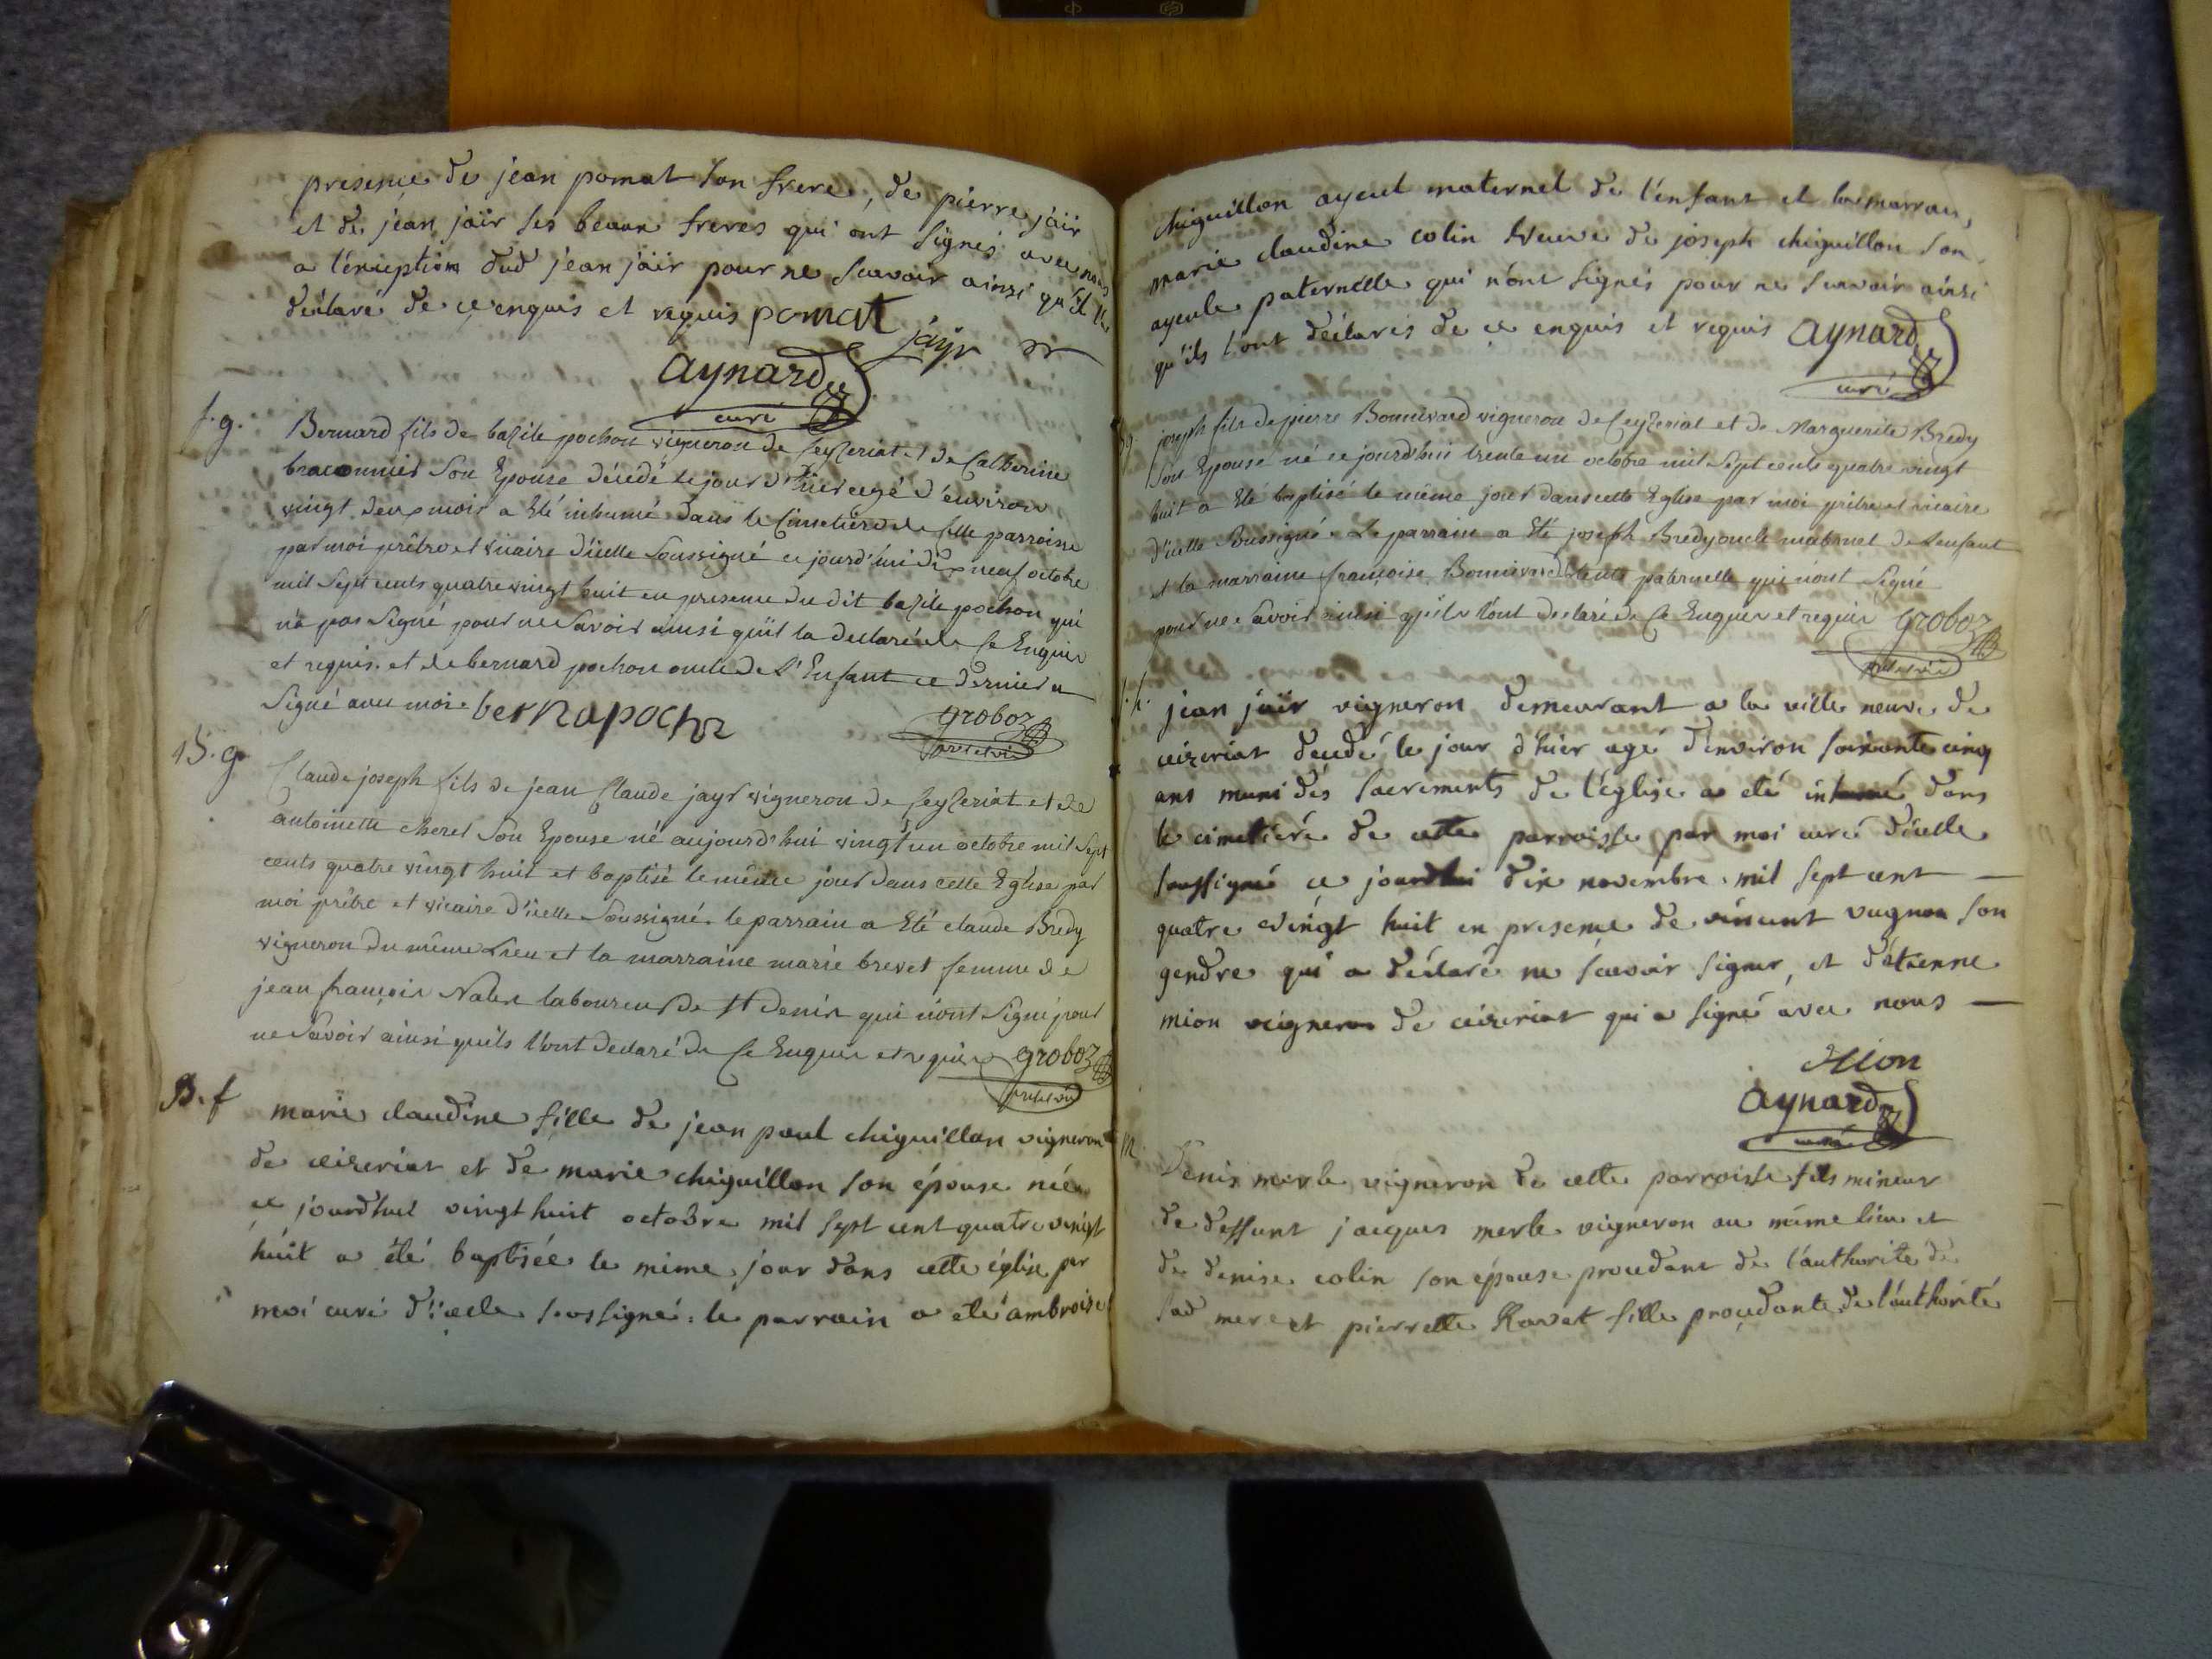 presence de jean pomat son frere, de pierre jaïr
et de jean jaïr ses beaux freres qui ont signés avec nous
a l'éxception dud jean jaïr pour ne scavoir ainsi qu'il l'a
déclaré de ce enquis et requis pomat
jayr
aynard
curé
s. g.
Bernard fils de bazile pochon vigneron de Ceyzeriat et de Catherine
braconnier Son Epouse décédé le jour d'hier agé d'environ
vingt deux mois a Eté inhumé dans le Cimetière de Cette parroisse
par moi prêtre et vicaire d'icelle Soussigné ce jourd'hui dix neuf octobre
mil Sept cents quatre vingt huit en presence du dit bazile pochon qui
n'a pas Signé pour ne Savoir ainsi qu'il la declaré de Ce Enquis
et requis. et de bernard pochon oncle de l'Enfant ce dernier a
Signé avec moi. bernapochn
groboz
pretre vic
B. g.
Claude joseph fils de jean Claude jayr vigneron de Ceyzeriat et de
antoinette cheret Son Epouse né aujourd'hui vingt un octobre mil Sept
cents quatre vingt huit et baptisé le même jour dans cette Eglise par
moi prêtre et vicaire d'icelle Soussigné. le parrain a Eté claude Bredy
vigneron du même Lieu et la marraine marie brevet femme de
jean françois Nalet laboureur de St denis qui n'ont Signé pour
ne Savoir ainsi qu'ils l'ont declaré de Ce Enquis et requis groboz
pretre vic
B. f
marie claudine fille de jean paul chiguillon vigneron
de ceizeriat et de marie chiguillon son épouse née
ce jourdhui vingt huit octobre mil sept cent quatre vingt
huit a été baptisée le même jour dans cette église par
moi curé d'icelle soussigné. le parrain a eté ambroise
chiguillon ayeul maternel de l'enfant et la marraine,
marie claudine colin veuve de joseph chiguillon son
ayeule paternelle qui n'ont signés pour ne scavoir ainsi
qu'ils l'ont déclarés de ce enquis et requis aynard
curé
joseph fils de pierre Bonnivard vigneron de Ceyzeriat et de Marguerite Bredy
Son Epouse né ce jourd'hui trente un octobre mil Sept cents quatre vingt
huit a Eté baptisé le même jour dans cette Eglise par moi prêtre et vicaire
d'icelle Soussigné. Le parrain a Eté joseph Bredy oncle maternel de L'enfant
et la marraine françoise Bonnivard tante paternelle qui n'ont Signé
pour ne Savoir ainsi qu'ils l'ont declaré de Ce Enquis et requis groboz
pretre vic
s. h.
jean jaïr vigneron demeurant a la ville neuve de
ceizeriat décédé le jour d'hier agé d'environ soixante cinq
ans muni des sacrements de l'église a eté inhumé dans
le cimetière de cette parroisse par moi curé d'icelle
soussigné ce jourdhui dix novembre mil sept cent
quatre vingt huit en presence de vincent vugnon son
gendre qui a déclaré ne scavoir signer, et d'étienne
mion vigneron de ceizeriat qui a signé avec nous
Mion
aynard
curé
M.
Denis merle vigneron de cette parroisse fils mineur
de deffunt jacques merle vigneron au même lieu et
de denise colin son épouse procedant de l'authorité de
sad mere et pierrette Ravat fille procedante de l'authorité